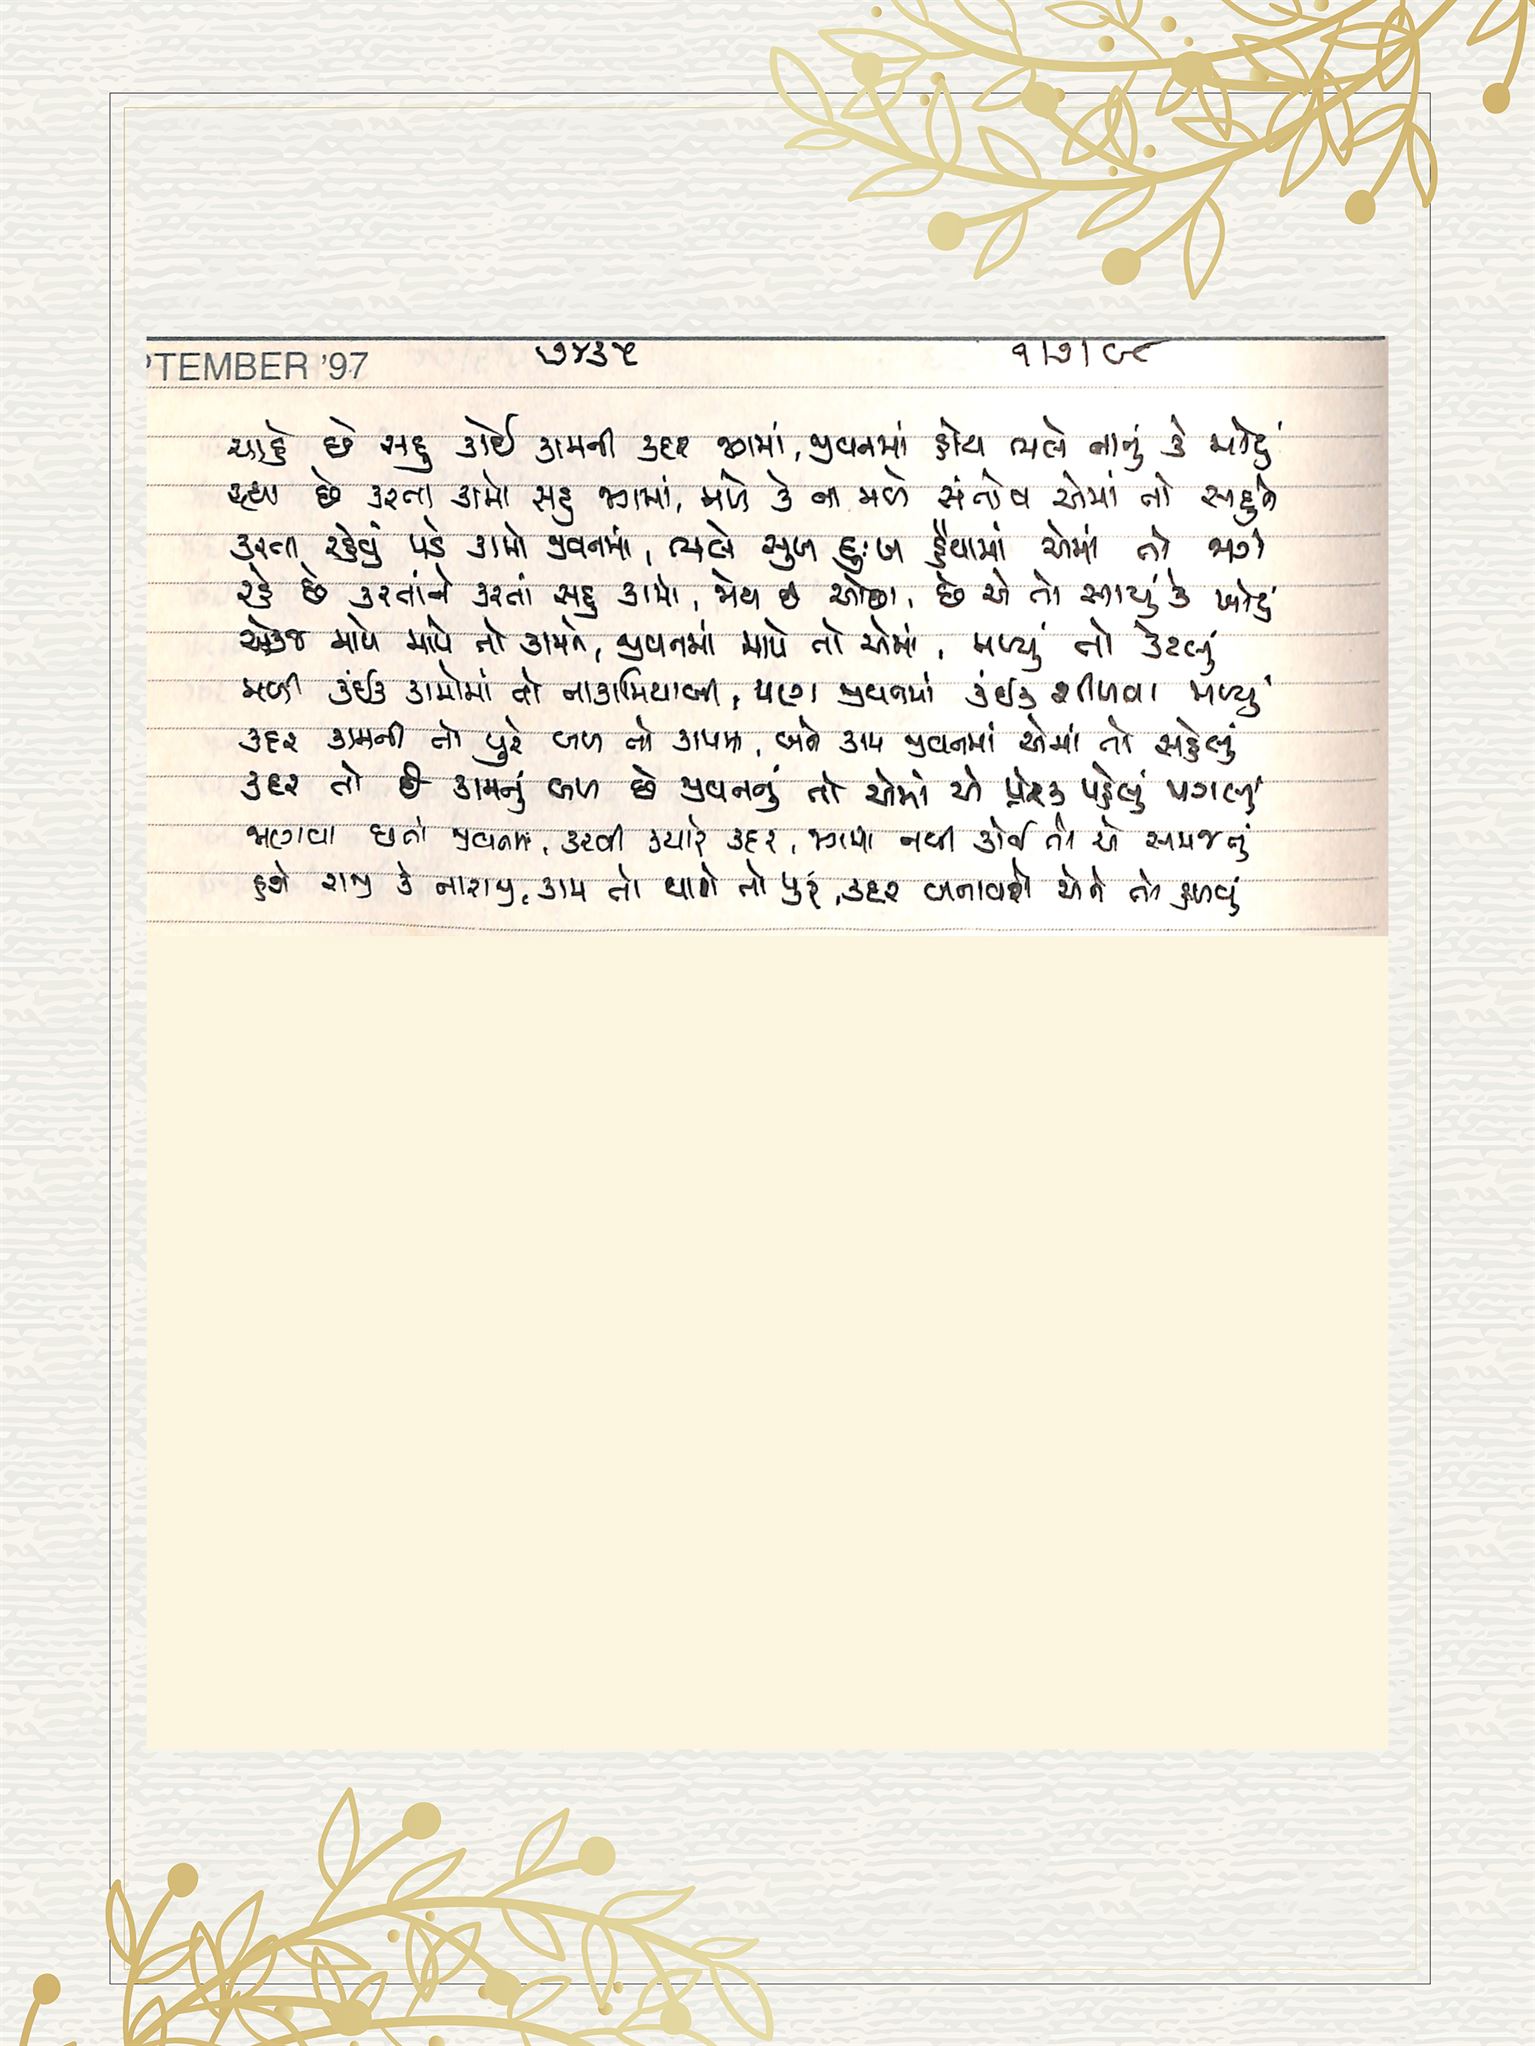 PTEMBER '97 ૭૪૩૫ ૧/૭/૯૮
ચાહે છે સહુ કોઈ કામની કદર જગમાં, જીવનમાં હોય ભલે નાનું કે મોટું
રહ્યા છે કરતા કામો સહુ જગમાં, મળે કે ના મળે સંતોષ એમાં તો સહુને
કરતા રહેવું પડે કામો જીવનમાં, ભલે સુખ દુઃખ હૈયામાં એમાં તો જાગે
રહે છે કરતાંને કરતાં સહુ કામો, છે એ તો સાચું કે ખોટું
એકજ માપે માપે તો કામને, જીવનમાં માપે તો એમાં, મળ્યું તો કેટલું
મળી કંઈક કામોમાં તો નાકામિયાબી, પણ જીવનમાં કંઈક શીખવા મળ્યું
કદર કામની તો પુરે બળ તો કામમાં, બને કામ જીવનમાં એમાં તો સહેલું
કદર તો છે કામનું બળ છે જીવનનું તો એમાં એ પ્રેરક પહેલું પગલું
જાણવા છતાં જીવનમાં, કરવી ક્યારે કદર, જગમાં નથી કોઈ તો એ સમજતું
હશે રાજી કે નારાજી, કામ તો થાશે તો પુરું, કદર બનાવશે એને તો હળવું